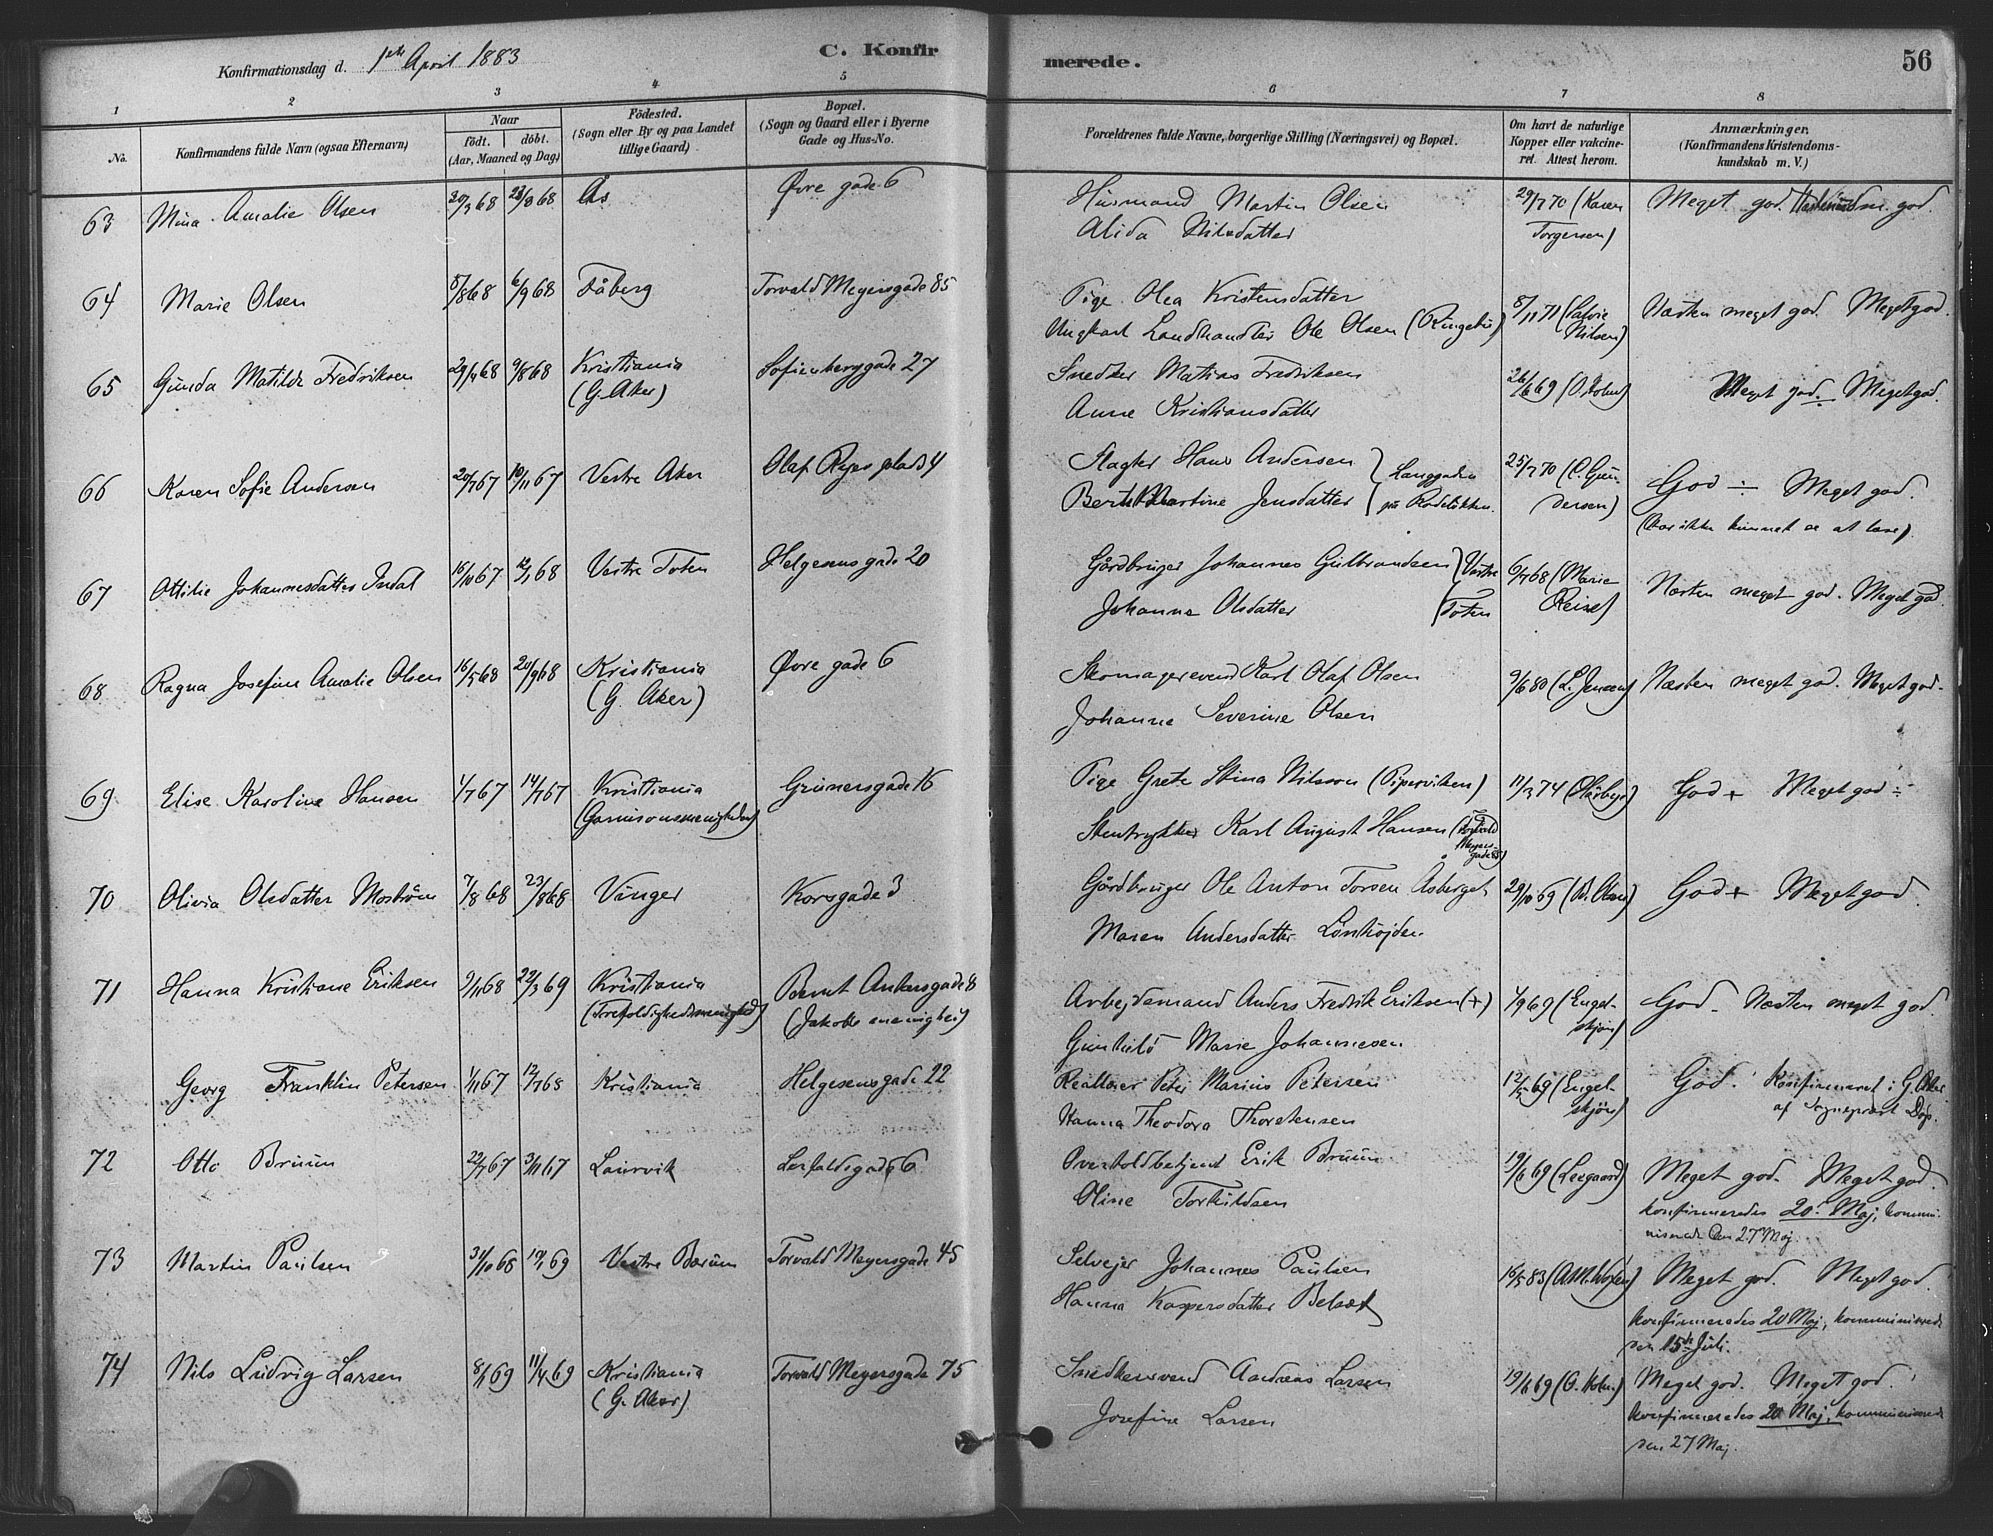 Konfirmationsdag d. 1ste April 1883
C. Konfirmerede.
56
1 2 3 4 5 6 7 8
No.
Konfirmandens fulde Navn (ogsaa Efternavn)
Naar
födt. döbt.
(Aar, Maaned og Dag)
Födested.
(Sogn eller By og paa Landet
tillige Gaard)
Bopæl.
(Sogn og Gaard eller i Byerne
Gade og Hus-No.
Forældrenes fulde Navne, borgerlige Stilling (Næringsvei) og Bopæl.
Om havt de naturlige
Kopper eller vakcine-
ret. Attest herom.
Anmærkninger.
(Konfirmandens Kristendoms-
kundskab m. V.)
63 Mina Amalie Olsen 20/3 68 23/8 68 Ås Øvre gade 6 Husmand Martin Olsen 29/7 70 (Karen Meget god. m. god.
Alida Nilsdatter Torgersen)
64 Marie Olsen 8/8 68 6/9 68 Fåberg Torvald Meyersgade 85 Pige Olea Kristensdatter 8/11 71 ( Næsten meget god. Meget god.
Ungkarl Landhandler Ole Olsen (Ringebu) Nilsen)
65 Gunda Matilde Fredriksen 29/4 68 9/8 68 Kristiania Sofienberggade 27 Snedker Matias Fredriksen 26/6 69 (O. Holm) Meget god. ÷ Meget god.
(G. Aker) Anne Kristiansdatter
66 Karen Sofie Andersen 20/7 67 10/11 67 Vestre Aker Olaf Ryes plads 4 Slagter Hans Andersen } Langgaden 25/7 70 (C. Gun- God ÷ Meget god.
Berte Martine Jensdatter på Rodeløkken. dersen) (har ikke kunnet se at læse).
67 Ottilie Johannesdatter Indal 16/10 67 12/1 68 Vestre Toten Helgesens gade 20 Gårdbruger Johannes Gulbrandsen } Vestre 6/7 68 (Marie Næsten meget god. Meget god.
Johanne Olsdatter Toten Reise)
68 Ragna Josefine Amalie Olsen 16/5 68 20/9 68 Kristiania Øvre gade 6 Skomagersvend Karl Olaf Olsen 9/6 80 (L. Jensen) Næsten meget god. Meget god.
(G. Aker) Johanne Severine Olsen
69 Elise Karoline Hansen 1/7 67 14/7 67 Kristiania Grünersgade 16 Pige Grete Stina Nilsson (Pipervicken) 11/3 74 God + Meget god ÷
(Garnisonsmenigheden) Stentrykker Karl August Hansen (Torvald
Meyers-
gade 85)
70 Olivia Olsdatter Moström 7/8 68 23/8 68 Vinger Korsgade 3 Gårdbruger Ole Anton Torsen Åsberget 29/10 69 God + Meget god.
Maren Andersdatter Lönhöjden
71 Hanna Kristiane Eriksen 9/11 68 22/3 69 Kristiania Bernt Ankersgade 8 Arbejdsmand Anders Fredrik Eriksen (+) 1/9 69 (Engel- God - Næsten meget god.
(Trefoldighedsmenighed) (Jakobs menighed) Gunhild Marie Johannesen skjøn)
Georg Franklin Petersen 1/11 67 12/7 68 Kristiania Helgesensgade 22 Peter Marius Petersen 12/5 69 (Engel- God. Konfirmeret i G. Aker
Hanna Theodora Thorstensen skjön) af Sogneprest Dop.
72 Otto Bruun 22/7 67 3/11 67 Laurvik Leirfaldsgade 6 Overtoldbetjent Erik Bruun 19/6 69 (Leegaard) Meget god. Meget god.
Oline Torkildsen konfirmeredes 20. Maj, kommu-
niserede den 27 Maj.
73 Martin Paulsen 31/10 68 69 Vestre Bærum Torvald Meyersgade 45 Selvejer Johannes Paulsen 16/5 83 Meget god. Meget god.
Hanna Kaspersdatter Belset konfirmeredes 20 Maj, kommunicerede
den 15de Juli.
74 Nils Ludvig Larsen 8/1 69 11/4 69 Kristiania Torvald Meyersgade 75 Snedkersvend Andreas Larsen 19/6 69 (O. Holm.) Meget god. Meget god.
(G. Aker) Josefine Larsen konfirmeredes 20 Maj, kommunicerede
den 27 Maj.